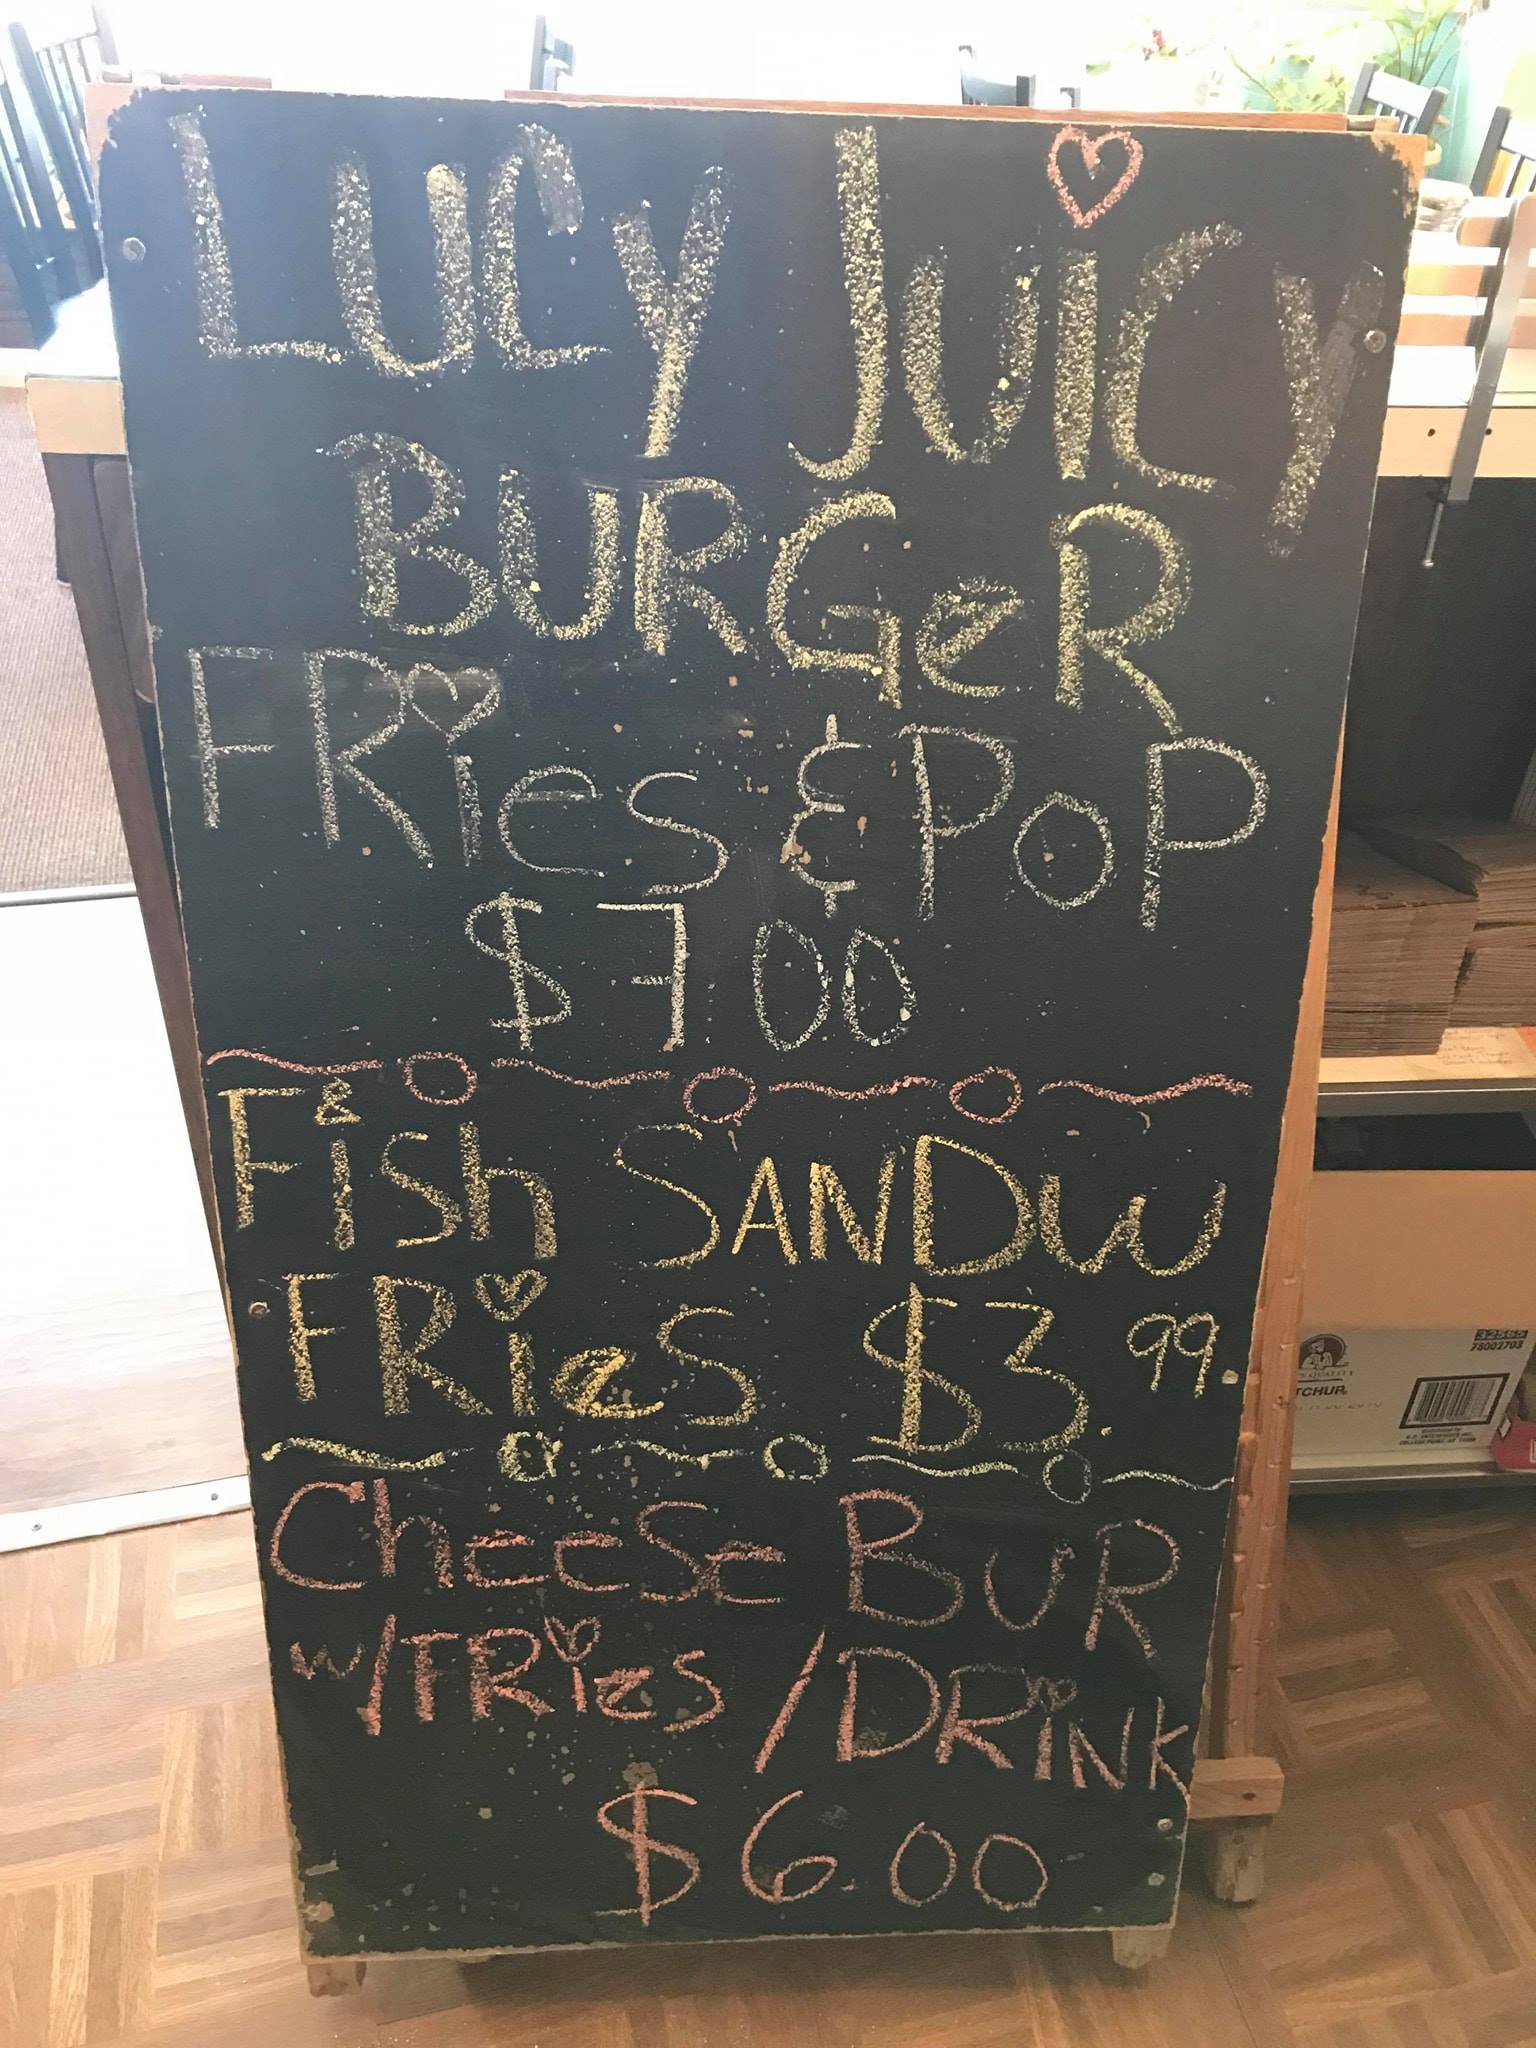 LUCY JUiCY
BURGeR
FRies & PoP
$7.00
Fish SANDW
FRies $3.99.
Cheese BUR
w/FRies / DRiNK
$6.00
32565
78002703
TCHUP